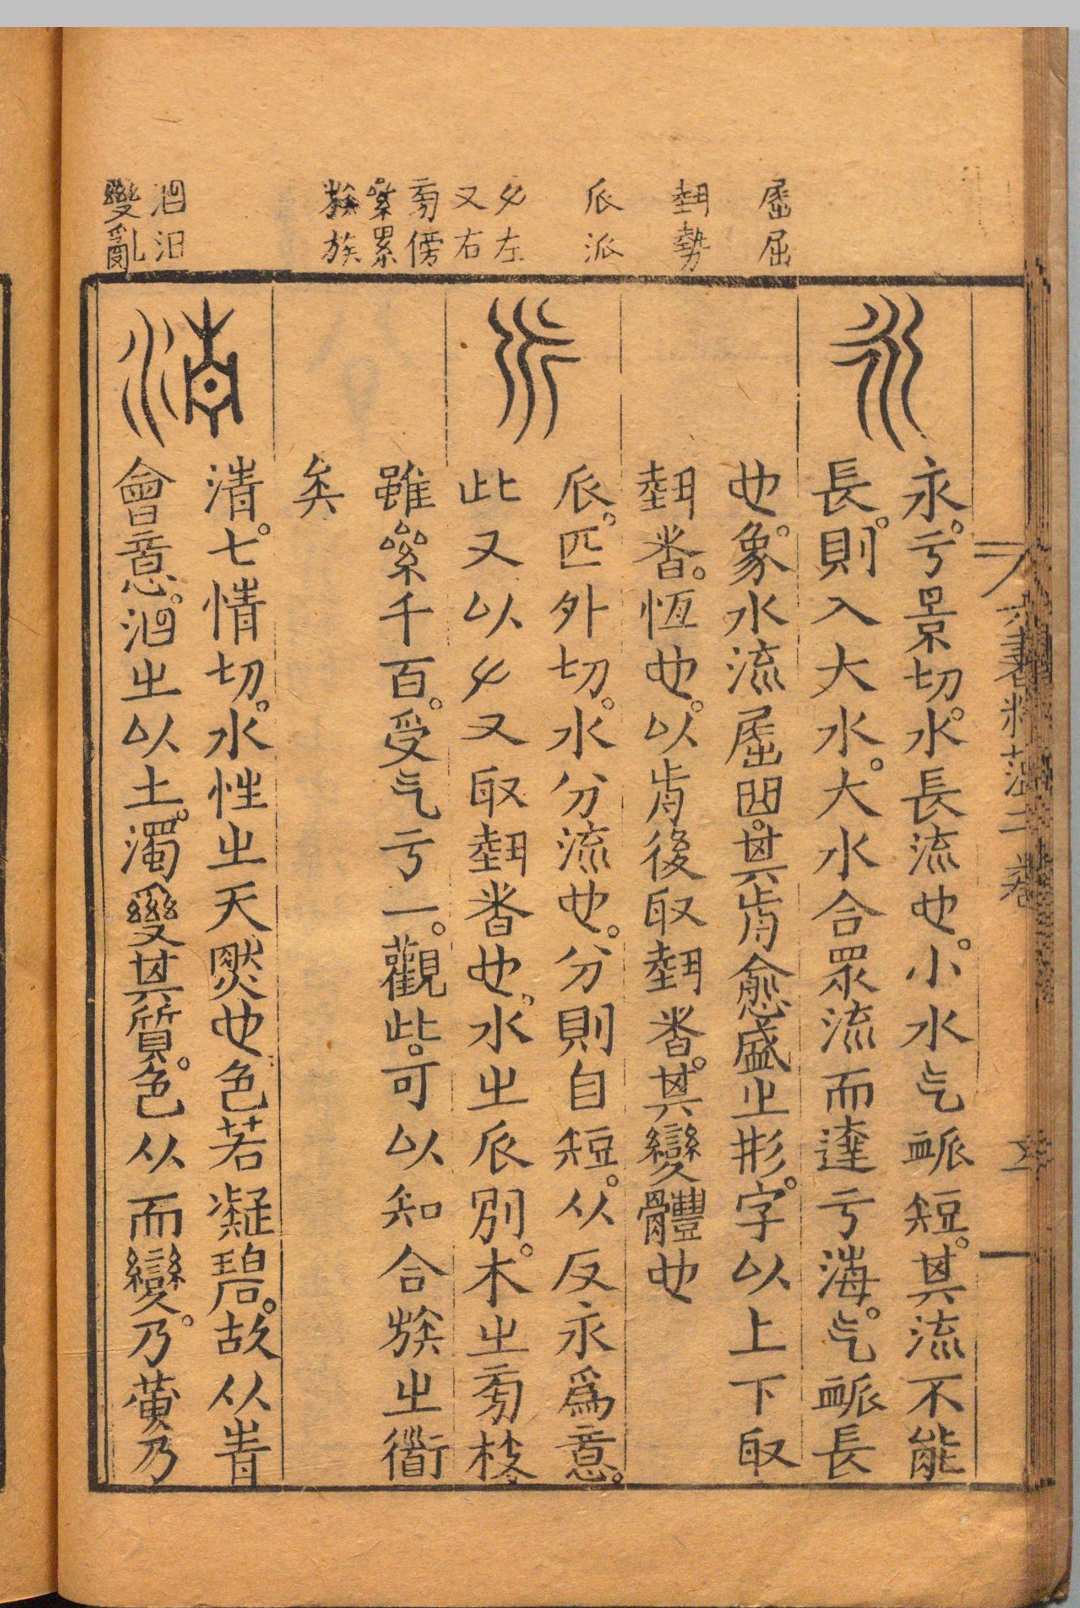 屈屈
埶勢
𠂢派
𠂇左
又右
㫄傍
絫累
族族
汩汩
𤔔亂
六書精蘊二卷
永。亏景切。水長流也。小水气衇短。其流不能
長。則入大水。大水合眾流而達亏海。气衇長
也。象水流屈曲。其歬愈盛之形。字以上下取
埶者。恆也。以歬後取埶者。其變體也
𠂢。匹外切。水分流也。分則自短。从反永爲意。
此又以𠂇又取埶者也。水之𠂢別。木之㫄枝
雖絫千百。受气亏一。觀此。可以知合族之衜
矣
清。七情切。水性之天然也色若凝碧。故从青
會意。汩之以土。濁𤔔其質。色从而變。乃黃乃